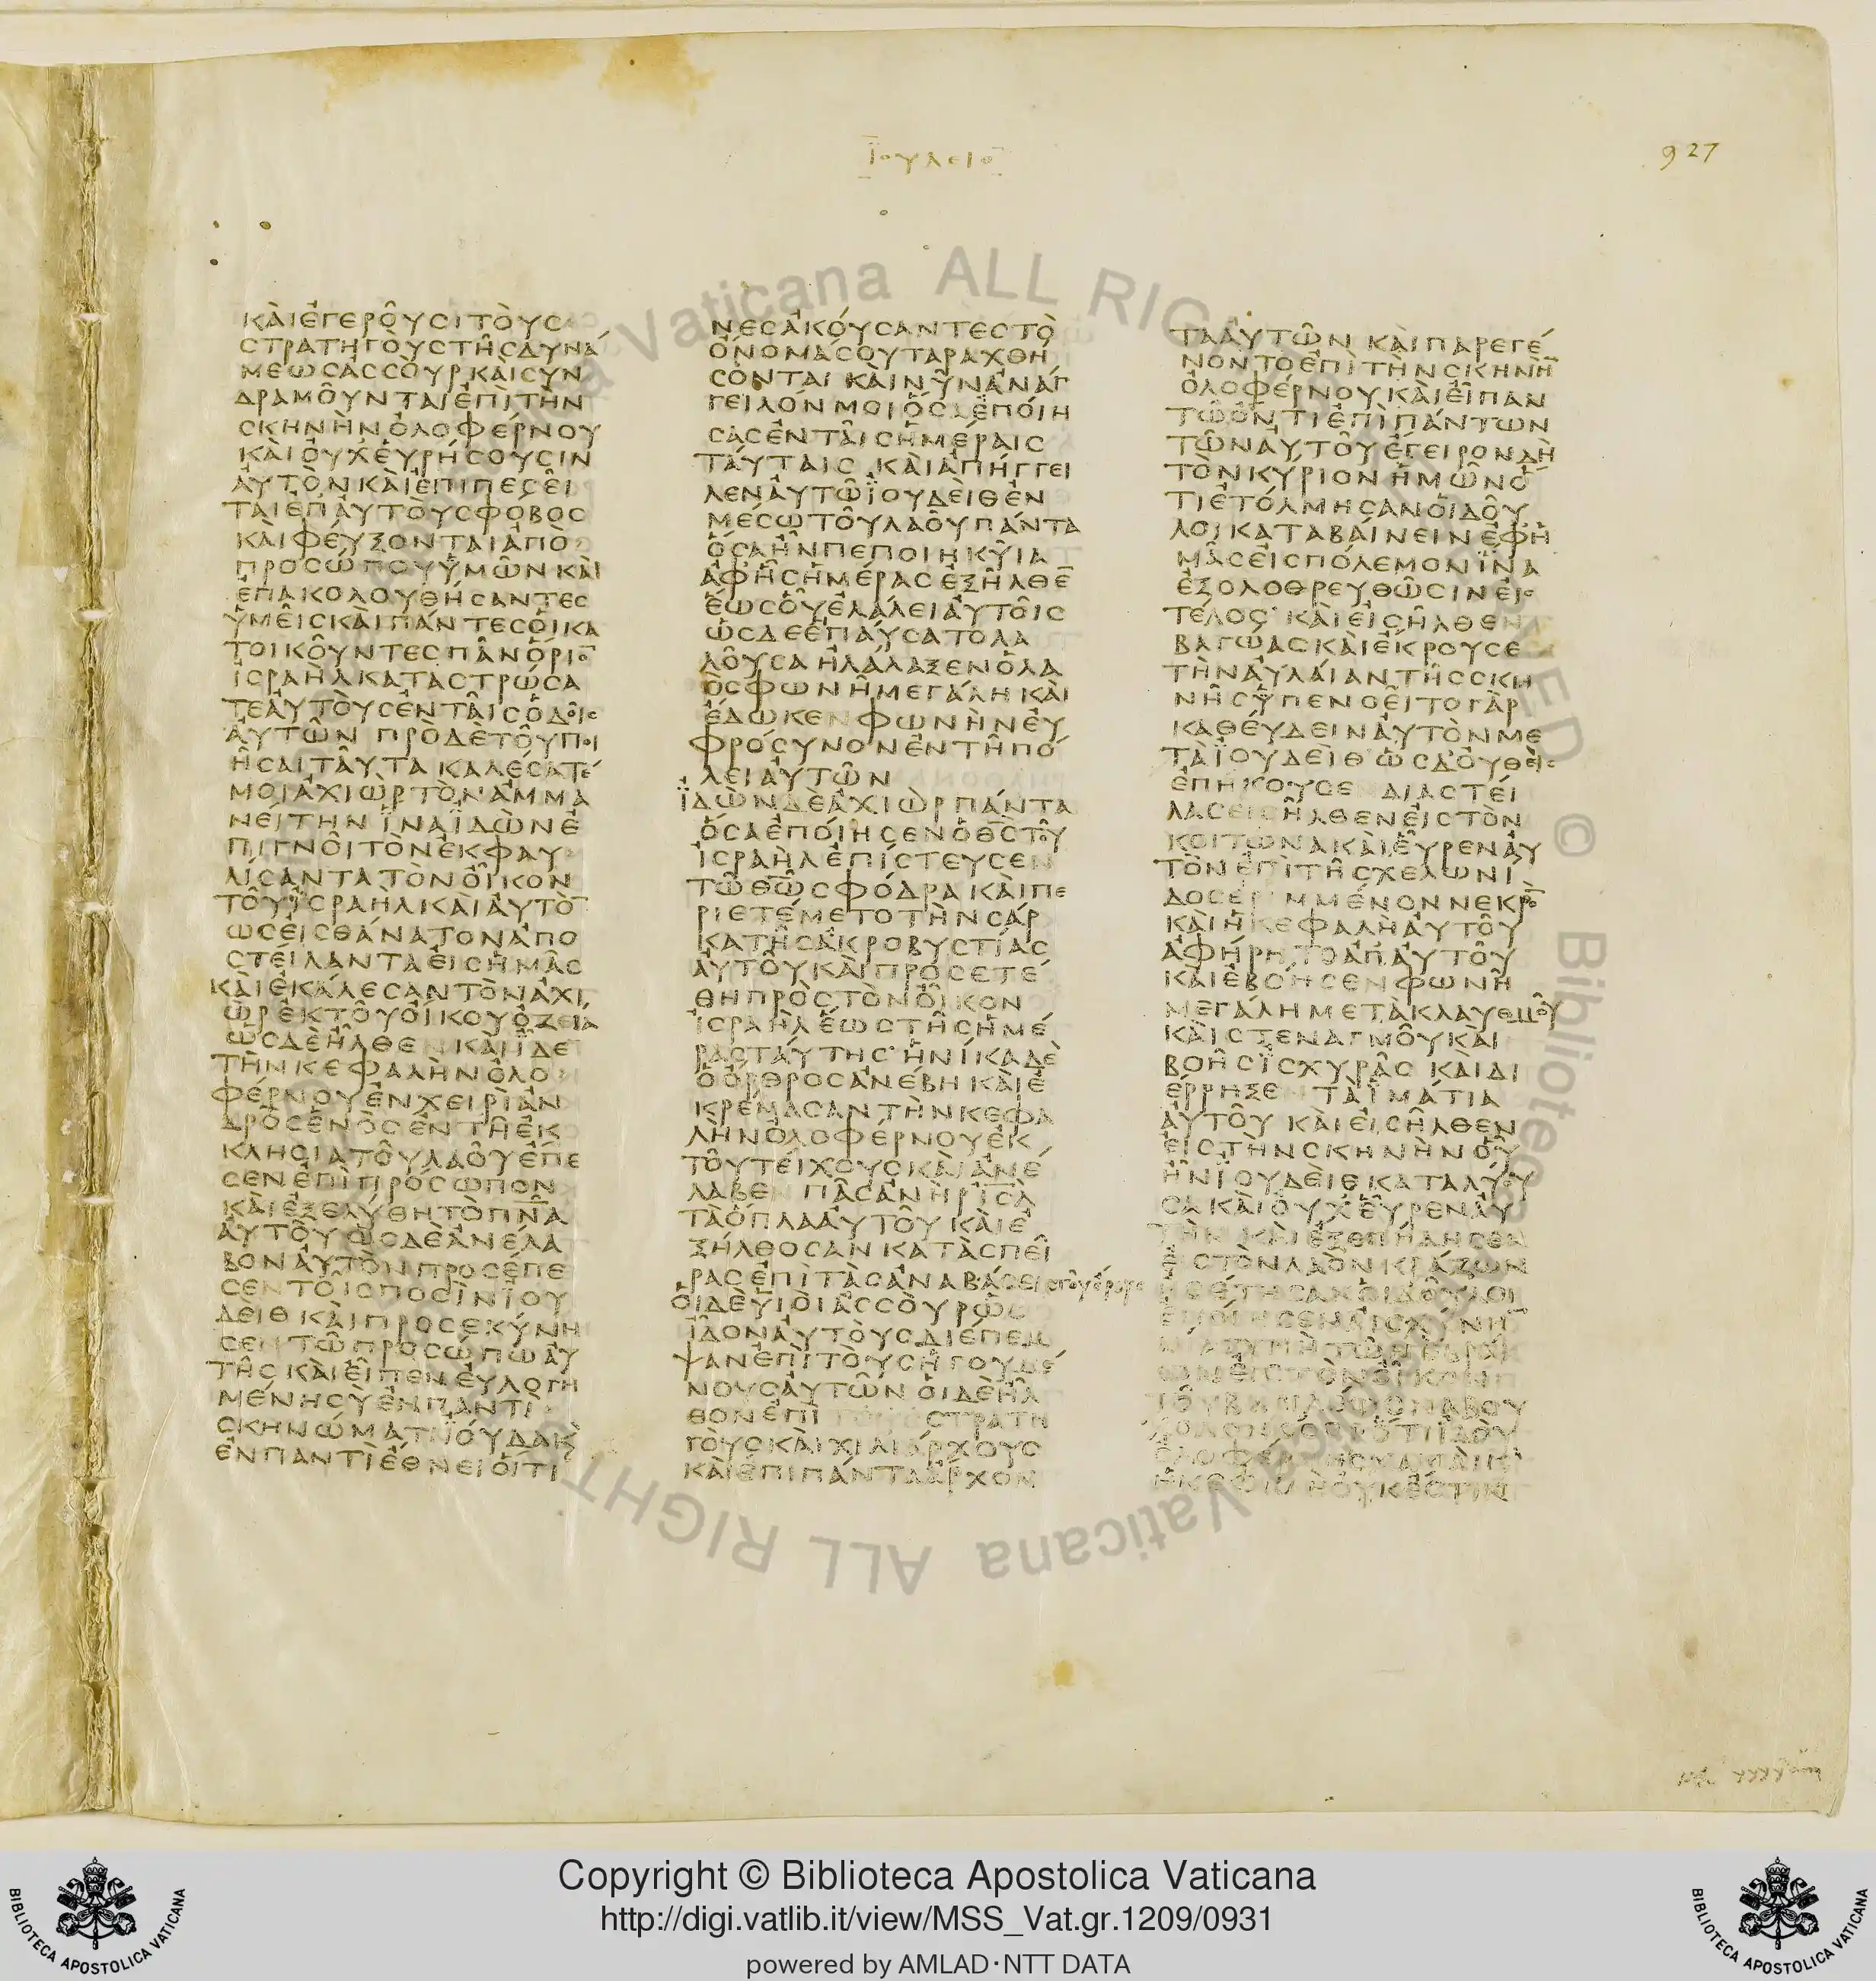 ΪΟΥΔΕΙΘ
927
ΚΑΙΕΓΕΡΟΥϹΙΤΟΥϹ
ϹΤΡΑΤΗΓΟΥϹΤΗϹΔΥΝΑ
ΜΕΩϹΑϹϹΟΥΡΚΑΙϹΥΝ
ΔΡΑΜΟΥΝΤΑΙΕΠΙΤΗΝ
ϹΚΗΝΗΝΟΛΟΦΕΡΝΟΥ
ΚΑΙΟΥΧΕΥΡΗϹΟΥϹΙΝ
ΑΥΤΟΝΚΑΙΕΠΙΠΕϹΕΙ
ΤΑΙΕΠΑΥΤΟΥϹΦΟΒΟϹ
ΚΑΙΦΕΥΞΟΝΤΑΙΑΠΟ
ΠΡΟϹΩΠΟΥΥΜΩΝΚΑΙ
ΕΠΑΚΟΛΟΥΘΗϹΑΝΤΕϹ
ΥΜΕΙϹΚΑΙΠΑΝΤΕϹΟΙΚΑ
ΤΟΙΚΟΥΝΤΕϹΠΑΝΟΡΙΟ̅
ΙϹΡΑΗΛΚΑΤΑϹΤΡΩϹΑ
ΤΕΑΥΤΟΥϹΕΝΤΑΙϹΟΔΟΙϹ
ΑΥΤΩΝ ΠΡΟΔΕΤΟΥΠΟΙ
ΗϹΑΙΤΑΥΤΑ ΚΑΛΕϹΑΤΕ
ΜΟΙΑΧΙΩΡΤΟΝΑΜΜΑ
ΝΕΙΤΗΝ ΪΝΑΪΔΩΝΕ
ΠΙΓΝΟΙΤΟΝΕΚΦΑΥ
ΛΙϹΑΝΤΑΤΟΝΟΙΚΟΝ
ΤΟΥΪϹΡΑΗΛΚΑΙΑΥΤΟ̅
ΩϹΕΙϹΘΑΝΑΤΟΝΑΠΟ
ϹΤΕΙΛΑΝΤΑΕΙϹΗΜΑϹ
ΚΑΙΕΚΑΛΕϹΑΝΤΟΝΑΧΙ
ΩΡΕΚΤΟΥΟΙΚΟΥΟΖΕΙΑ
ΩϹΔΕΗΛΘΕΝ ΚΑΙΪΔΕ
ΤΗΝΚΕΦΑΛΗΝΟΛΟ
ΦΕΡΝΟΥΕΝΧΕΙΡΙΑΝ
ΔΡΟϹΕΝΟϹΕΝΤΗΕΚ
ΚΛΗϹΙΑΤΟΥΛΑΟΥΕΠΕ
ϹΕΝΕΠΙΠΡΟϹΩΠΟΝ
ΚΑΙΕΞΕΛΥΘΗΤΟΠΝ̅Α
ΑΥΤΟΥΩϹΔΕΑΝΕΛΑ
ΒΟΝΑΥΤΟΝΠΡΟϹΕΠΕ
ϹΕΝΤΟΙϹΠΟϹΙΝΪΟΥ
ΔΕΙΘΚΑΙΠΡΟϹΕΚΥΝΗ
ϹΕΝΤΩΠΡΟϹΩΠΩΑΥ
ΤΗϹΚΑΙΕΙΠΕΝΕΥΛΟΓΗ
ΜΕΝΗϹΥΕΝΠΑΝΤΙ
ϹΚΗΝΩΜΑΤΙΪΟΥΔΑΚ
ΕΝΠΑΝΤΙΕΘΝΕΙΟΙΤΙ
ΝΕϹΑΚΟΥϹΑΝΤΕϹΤΟ
ΟΝΟΜΑϹΟΥΤΑΡΑΧΘΗ
ϹΟΝΤΑΙ ΚΑΙΝΥΝΑΝΑΓ
ΓΕΙΛΟΝΜΟΙΟϹΑΕΠΟΙΗ
ϹΑϹΕΝΤΑΙϹΗΜΕΡΑΙϹ
ΤΑΥΤΑΙϹ ΚΑΙΑΠΗΓΓΕΙ
ΛΕΝΑΥΤΩΪΟΥΔΕΙΘΕΝ
ΜΕϹΩΤΟΥΛΑΟΥΠΑΝΤΑ
ΟϹΑΗΝΠΕΠΟΙΗΚΥΙΑ
ΑΦΗϹΗΜΕΡΑϹΕΞΗΛΘΕ̅
ΕΩϹΟΥΕΛΑΛΕΙΑΥΤΟΙϹ
ΩϹΔΕΕΠΑΥϹΑΤΟΛΑ
ΛΟΥϹΑΗΛΑΛΑΞΕΝΟΛΑ
ΟϹΦΩΝΗΜΕΓΑΛΗΚΑΙ
ΕΔΩΚΕΝΦΩΝΗΝΕΥ
ΦΡΟϹΥΝΟΝΕΝΤΗΠΟ
ΛΕΙΑΥΤΩΝ
ΪΔΩΝΔΕΑΧΙΩΡΠΑΝΤΑ
ΟϹΑΕΠΟΙΗϹΕΝΟΘ̅Ϲ̅ΤΟΥ
ΙϹΡΑΗΛΕΠΙϹΤΕΥϹΕΝ
ΤΩΘ̅Ω̅ϹΦΟΔΡΑΚΑΙΠΕ
ΡΙΕΤΕΜΕΤΟΤΗΝϹΑΡ
ΚΑΤΗϹΑΚΡΟΒΥϹΤΙΑϹ
ΑΥΤΟΥΚΑΙΠΡΟϹΕΤΕ
ΘΗΠΡΟϹΤΟΝΟΙΚΟΝ
ΙϹΡΑΗΛΕΩϹΤΗϹΗΜΕ
ΡΑϹΤΑΥΤΗϹ ΗΝΙΚΑΔΕ
ΟΟΡΘΡΟϹΑΝΕΒΗΚΑΙΕ
ΚΡΕΜΑϹΑΝΤΗΝΚΕΦΑ
ΛΗΝΟΛΟΦΕΡΝΟΥΕΚ
ΤΟΥΤΕΙΧΟΥϹΚΑΙΑΝΕ
ΛΑΒΕΝ ΠΑϹΑΝΗΡΙϹ̅Λ̅
ΤΑΟΠΛΑΑΥΤΟΥΚΑΙΕ
ΞΗΛΘΟϹΑΝΚΑΤΑϹΠΕΙ
ΡΑϹΕΠΙΤΑϹΑΝΑΒΑϹΕΙϹ
ΟΙΔΕΥΙΟΙΑϹϹΟΥΡΩϹ
ΙΔΟΝΑΥΤΟΥϹΔΙΕΠΕΜ
ΨΑΝΕΠΙΤΟΥϹΗΓΟΥΜΕ
ΝΟΥϹΑΥΤΩΝ ΟΙΔΕΗΛ
ΘΟΝΕΠΙ ΤΟΥϹϹΤΡΑΤΗ
ΓΟΥϹΚΑΙΧΙΛΙΑΡΧΟΥϹ
ΚΑΙΕΠΙΠΑΝΤΑΑΡΧΟΝ
ΤΑΑΥΤΩΝ ΚΑΙΠΑΡΕΓΕ
ΝΟΝΤΟΕΠΙΤΗΝϹΚΗΝΗ̅
ΟΛΟΦΕΡΝΟΥΚΑΙΕΙΠΑΝ
ΤΩΟΝΤΙΕΠΙΠΑΝΤΩΝ
ΤΩΝΑΥΤΟΥΕΓΕΙΡΟΝΔΗ
ΤΟΝΚΥΡΙΟΝΗΜΩΝΟ
ΤΙΕΤΟΛΜΗϹΑΝΟΙΔΟΥ
ΛΟΙΚΑΤΑΒΑΙΝΕΙΝΕΦΗ
ΜΑϹΕΙϹΠΟΛΕΜΟΝΪΝΑ
ΕΞΟΛΟΘΡΕΥΘΩϹΙΝΕΙϹ
ΤΕΛΟϹ ΚΑΙΕΙϹΗΛΘΕΝ
ΒΑΓΩΑϹΚΑΙΕΚΡΟΥϹΕ
ΤΗΝΑΥΛΑΙΑΝΤΗϹϹΚΗ
ΝΗϹΫΠΕΝΟΕΙΤΟΓΑΡ
ΚΑΘΕΥΔΕΙΝΑΥΤΟΝΜΕ
ΤΑΪΟΥΔΕΙΘ ΩϹΔΟΥΘΕΙϹ
ΕΠΗΚΟΥϹΕΝΔΙΑϹΤΕΙ
ΛΑϹΕΙϹΗΛΘΕΝΕΙϹΤΟΝ
ΚΟΙΤΩΝΑΚΑΙΕΥΡΕΝΑΥ
ΤΟΝΕΠΙΤΗϹΧΕΛΩΝΙ
ΔΟϹΕΡΙΜΜΕΝΟΝΝΕΚΡΟ̅
ΚΑΙΗΚΕΦΑΛΗΑΥΤΟΥ
ΑΦΗΡΗΤΟΑΠΑΥΤΟΥ
ΚΑΙΕΒΟΗϹΕΝΦΩΝΗ
ΜΕΓΑΛΗΜΕΤΑΚΛΑΥΘΜΟΥ
ΚΑΙϹΤΕΝΑΓΜΟΥΚΑΙ
ΒΟΗϹΪϹΧΥΡΑϹ ΚΑΙΔΙ
ΕΡΡΗΞΕΝ ΤΑΪΜΑΤΙΑ
ΑΥΤΟΥ ΚΑΙΕΙϹΗΛΘΕΝ
ΕΙϹΤΗΝϹΚΗΝΗΝΟΥ
ΗΝΪΟΥΔΕΙΘΚΑΤΑΛΥΟΥ
ϹΑΚΑΙΟΥΧΕΥΡΕΝΑΥ
ΤΗΝ ΚΑΙΕΞΕΠΗΔΗϹΕΝ
ΕΙϹΤΟΝΛΑΟΝΚΡΑΖΩΝ
ΗΘΕΤΗϹΑΝΟΙΔΟΥΛΟΙ
ΕΠΟΙΗϹΕΝΑΙϹΧΥΝΗ̅
ΩΝΕΙϹΤΟΝΟΙΚΟΝ
ΤΟΥΒΑϹΙΛΕΩϹΝΑΒΟΥ
ΗΚΕΦΑΛΗΟΥΚΕϹΤΙΝ
Copyright © Biblioteca Apostolica Vaticana
http://digi.vatlib.it/view/MSS_Vat.gr.1209/0931
powered by AMLAD·NTT DATA
BIBLIOTECA APOSTOLICA VATICANA
BIBLIOTECA APOSTOLICA VATICANA